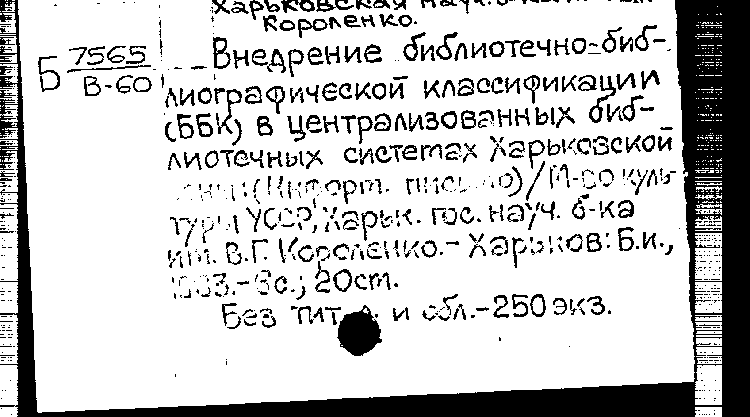 Харьковская науч. б-ка им.
Короленко.
Б 7565
В-60
Внедрение библиотечно-биб-
лиографической классификации
(ББК) в централизованных биб-
лиотечных системах Харьковской
(Информ. письмо) / М-во куль-
туры УССР, Харьк. гос. науч. б-ка
им. В.Г. Короленко.- Харьков: Б.и.,
20см.
Без тит. л. и обл.-250 экз.